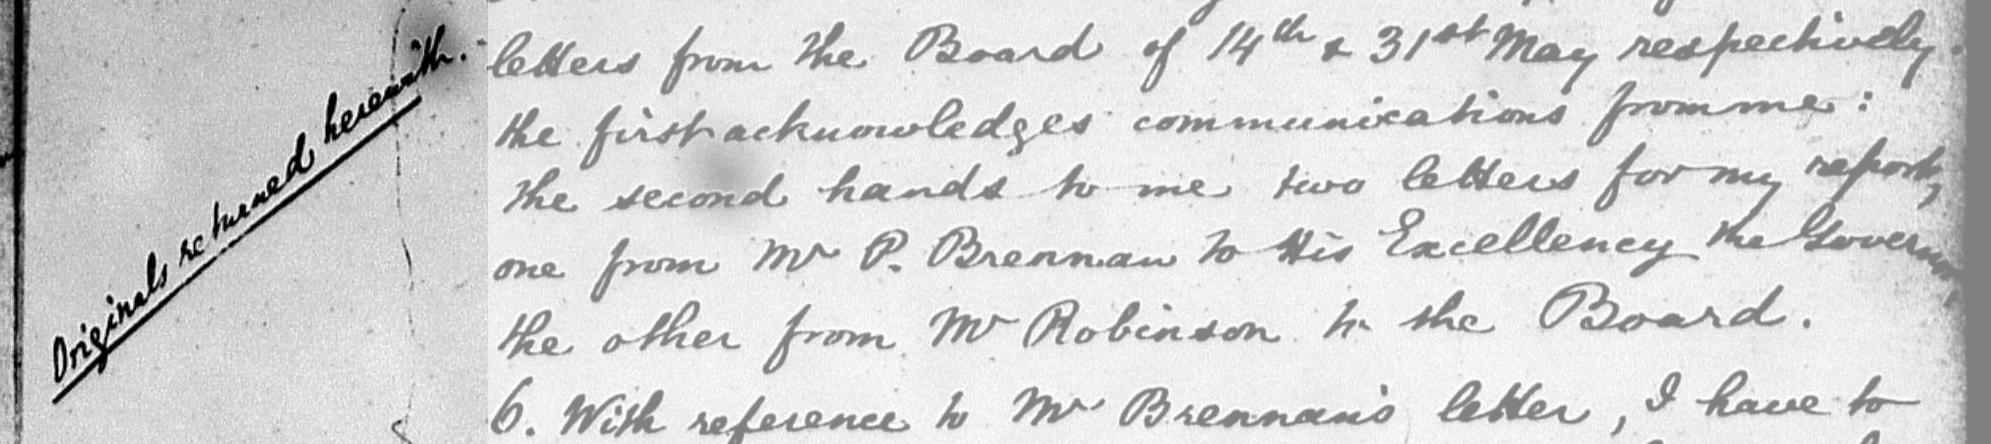 Originals returned herewith.
letters from the Board of 14th & 31st May respectively.
the first acknowledges communications from me:
the second hands to me two letters for my report,
one from Mr P. Brennan to His Excellency the Governor,
the other from Mr Robinson to the Board.
6. With reference to Mr Brennan's letter, I have to